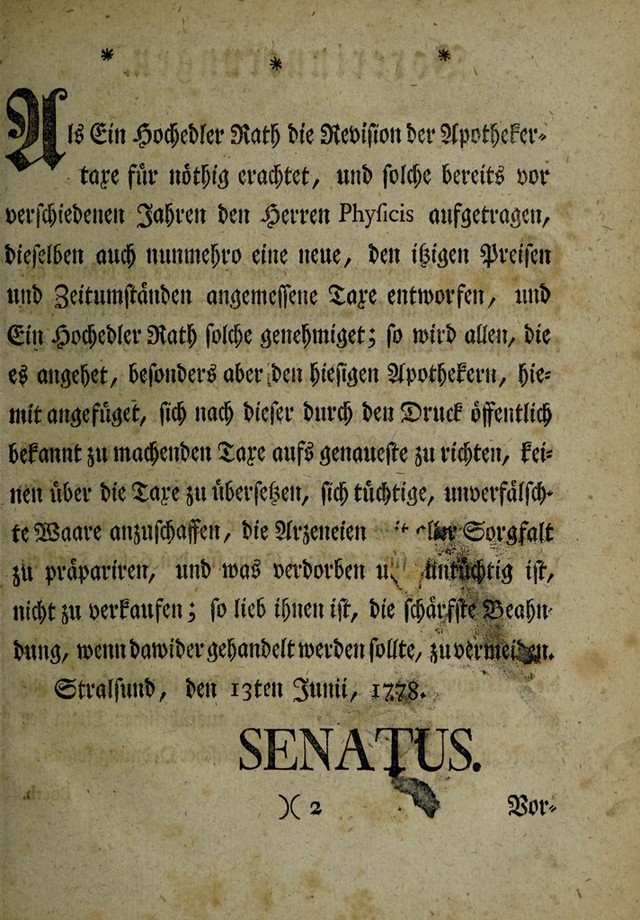 * * *
Als Ein Hochedler Rath die Revision der Apotheker-
taxe für nöthig erachtet, und solche bereits vor
verschiedenen Jahren den Herren Physicis aufgetragen,
dieselben auch nunmehro eine neue, den itzigen Preisen
und Zeitumständen angemessene Taxe entworfen, und
Ein Hochedler Rath solche genehmiget; so wird allen, die
es angehet, besonders aber den hiesigen Apothekern, hie-
mit angefüget, sich nach dieser durch den Druck öffentlich
bekannt zu machenden Taxe aufs genaueste zu richten, kei-
nen über die Taxe zu übersetzen, sich tüchtige, unverfälsch-
te Waare anzuschaffen, die Arzeneien mit aller Sorgfalt
zu präpariren, und was verborben und untüchtig ist,
nicht zu verkaufen; so lieb ihnen ist, die schärfste Beahn-
dung, wenn dawider gehandelt werden sollte, zu vermeiden.
Stralsund, den 13ten Junii, 1778.
SENATUS.
)( 2 Vor-